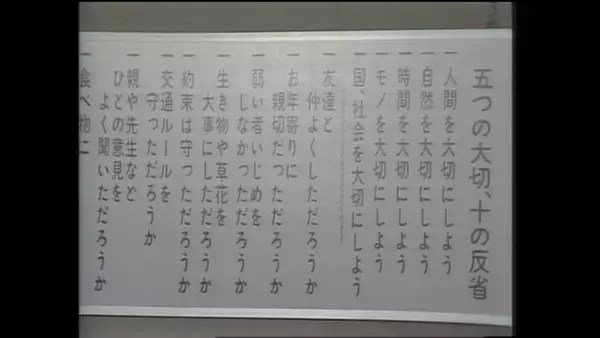 五つの大切、十の反省
一人間を大切にしよう
一自然を大切にしよう
一時間を大切にしよう
一モノを大切にしよう
一国、社会を大切にしよう
一友達と
仲よくしただろうか
一お年寄りに
親切だっただろうか
一弱い者いじめを
しなかっただろうか
一生き物や草花を
大事にしただろうか
一約束は守っただろうか
一交通ルールを
守っただろうか
一親や先生など
ひとの意見を
よく聞いただろうか
一食べ物に